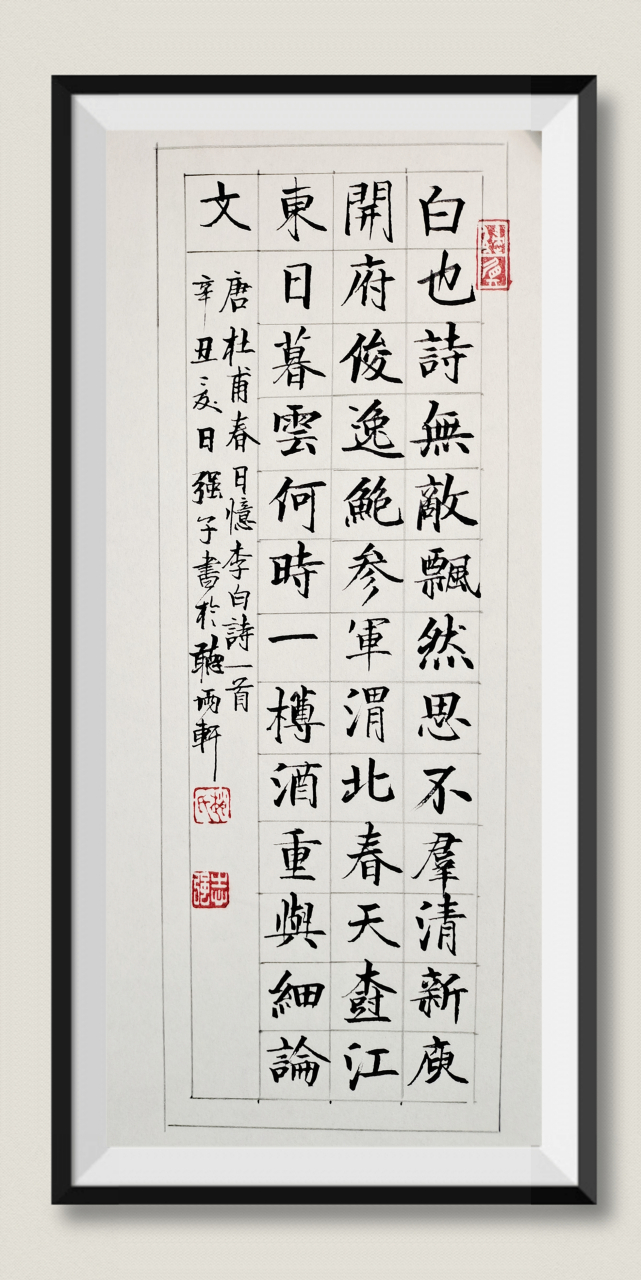 白也詩無敵飄然思不羣清新庾
開府俊逸鮑参軍渭北春天樹江
東日暮雲何時一樽酒重與細論
文
唐杜甫春日憶李白詩一首
辛丑之夏日强子書於聽軒
志强